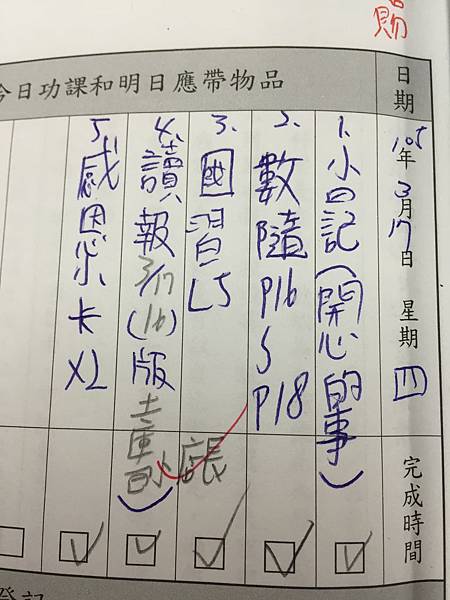 賜
今日功課和明日應帶物品
日期
105年3月17日 星期四
完成時間
1.小日記(開心的事)
2.數隨P16
~
P18
3.國習L5
4.讀報3/17(16)版
5.感恩小卡X2
登記